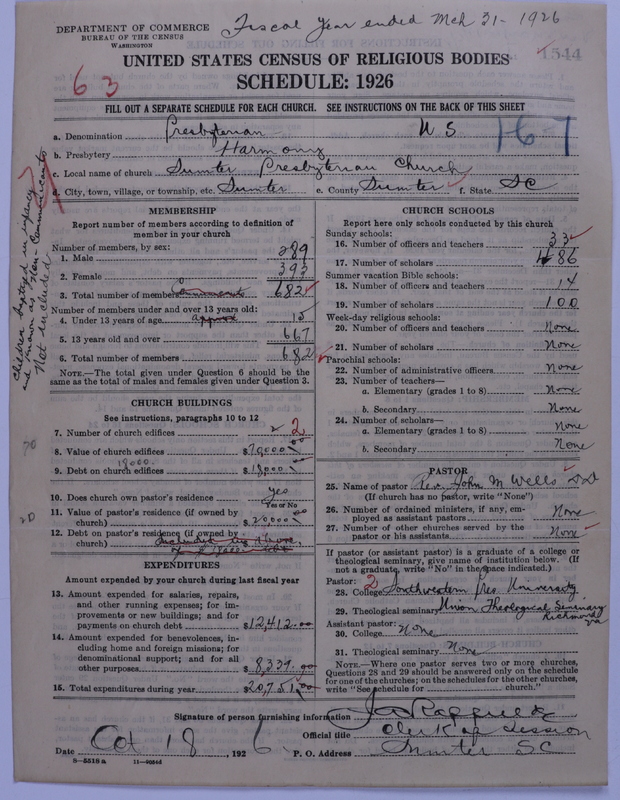 DEPARTMENT OF COMMERCE
BUREAU OF THE CENSUS
WASHINGTON
Fiscal Year ended Mch 31- 1926
1544
UNITED STATES CENSUS OF RELIGIOUS BODIES
SCHEDULE: 1926
63
FILL OUT A SEPARATE SCHEDULE FOR EACH CHURCH. SEE INSTRUCTIONS ON THE BACK OF THIS SHEET
a. Denomination Presbyterian U.S. 16-7
b. Presbytery Harmony
c. Local name of church Sumter Presbyterian Church
d. City, town, village, or township, etc. Sumter e. County Sumter f. State SC
Children baptized in infancy
and known as Non-Communicants
Not included
MEMBERSHIP
Report number of members according to definition of
member in your church
Number of members, by sex:
1. Male 289
2. Female 393
3. Total number of members 682
Number of members under and over 13 years old:
4. Under 13 years of age approx 15
5. 13 years old and over 667
6. Total number of members 682
NOTE.—The total given under Question 6 should be the
same as the total of males and females given under Question 3.
CHURCH BUILDINGS
See instructions, paragraphs 10 to 12
7. Number of church edifices 2
8. Value of church edifices $70000.00
18000.
9. Debt on church edifices $18000
10. Does church own pastor's residence yes
Yes or No
11. Value of pastor's residence (if owned by
church) $20000.00
12. Debt on pastor's residence (if owned by
church) Included in above
EXPENDITURES
Amount expended by your church during last fiscal year
13. Amount expended for salaries, repairs,
and other running expenses; for im-
provements or new buildings; and for
payments on church debt $12,412.00
14. Amount expended for benevolences, in-
cluding home and foreign missions; for
denominational support; and for all
other purposes $8,339.00
15. Total expenditures during year $20,751.00
CHURCH SCHOOLS
Report here only schools conducted by this church
Sunday schools:
16. Number of officers and teachers 33
17. Number of scholars 486
Summer vacation Bible schools:
18. Number of officers and teachers 14
19. Number of scholars 100
Week-day religious schools:
20. Number of officers and teachers None
21. Number of scholars None
Parochial schools:
22. Number of administrative officers None
23. Number of teachers—
a. Elementary (grades 1 to 8) None
b. Secondary None
24. Number of scholars—
a. Elementary (grades 1 to 8) None
b. Secondary None
PASTOR
25. Name of pastor Rev. John M Wells DD
(If church has no pastor, write "None")
26. Number of ordained ministers, if any, em-
ployed as assistant pastors None
27. Number of other churches served by the
pastor or his assistants None
If pastor (or assistant pastor) is a graduate of a college or
theological seminary, give name of institution below. (If
not a graduate, write "No" in the space indicated.)
Pastor: 2
28. College Southwestern Pres. University
29. Theological seminary Union Theological Seminary
Richmond Va
Assistant pastor:
30. College None
31. Theological seminary None
NOTE.—Where one pastor serves two or more churches,
Questions 28 and 29 should be answered only on the schedule
for one of the churches; on the schedules for the other churches,
write "See schedule for church."
Signature of person furnishing information
Official title Clerk of Session
Date Oct 18, 1926. P. O. Address Sumter SC
8—5518 a